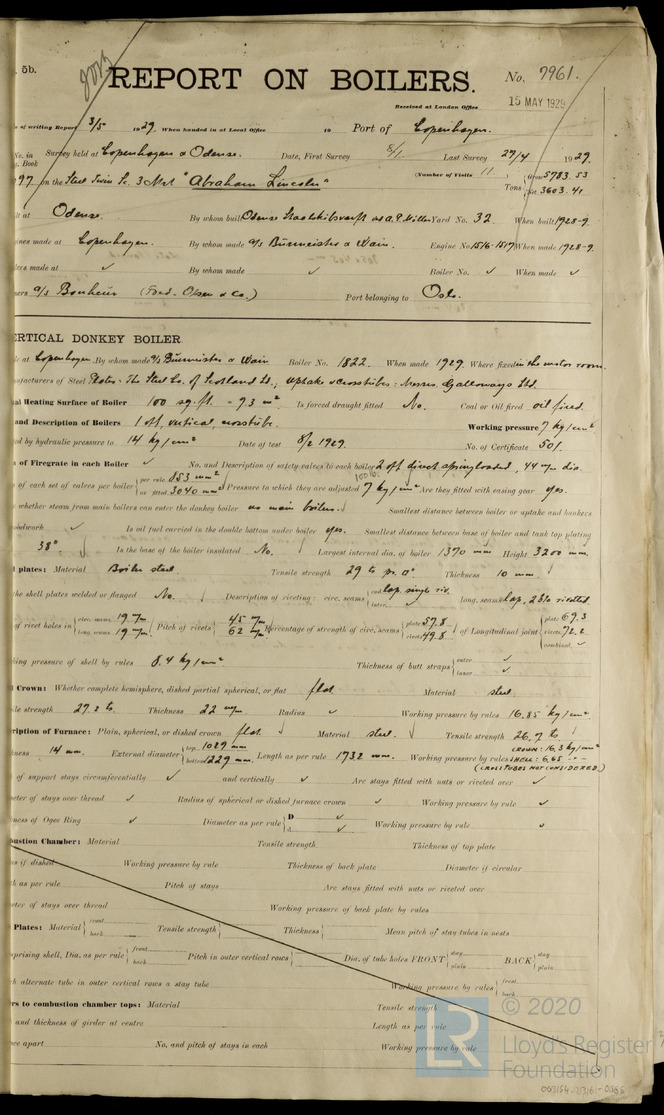 5b.
REPORT ON BOILERS.
No. 7961.
Received at London Office 15 MAY 1929
of writing Report 3/5 1929 When handed in at Local Office 19 Port of Copenhagen.
No. in Survey held at Copenhagen & Odense. Date, First Survey 8/1 Last Survey 27/4 1929.
Book (Number of Visits 11)
97 on the Steel "Abraham Lincoln" Tons 5783.53 3603.41
Odense. By whom built Odense Yard No. 32 When built 1928-9.
made at Copenhagen. By whom made A/S Burmeister & Wain. Engine No 1516-1517 When made 1928-9.
made at ✓ By whom made ✓ Boiler No. ✓ When made ✓
A/S Bonheur (Fred. Olsen & Co.) Port belonging to Oslo.
ERTICAL DONKEY BOILER.
at Copenhagen. By whom made A/S Burmeister & Wain Boiler No. 1822. When made 1929. Where fixed in the motor room.
nufacturers of Steel Plates: The Steel Co. of Scotland Ld., uptake & crosstubes: Galloways Ltd.
al Heating Surface of Boiler 100 sq. ft. - 9.3 m² Is forced draught fitted No. Coal or Oil fired oil fired.
and Description of Boilers 1 off, vertical, crosstube. Working pressure 7 kg/cm²
ed by hydraulic pressure to 14 kg/cm² Date of test 8/2 1929. No. of Certificate 501.
of Firegrate in each Boiler ✓ No. and Description of safety valves to each boiler 2 off direct spring loaded, 44 m/m dia.
of each set of valves per boiler per rule 853 mm² as fitted 3040 mm² Pressure to which they are adjusted 7 kg/cm² Are they fitted with easing gear yes.
whether steam from main boilers can enter the donkey boiler no main boilers. Smallest distance between boiler or uptake and bunkers
oodwork ✓ Is oil fuel carried in the double bottom under boiler yes. Smallest distance between base of boiler and tank top plating
38" Is the base of the boiler insulated No. Largest internal dia. of boiler 1370 mm Height 3200 mm.
plates: Material Boiler steel Tensile strength 29 to pr. □" Thickness 10 mm.
the shell plates welded or flanged No. Description of riveting: circ. seams end lap, single riv. inter. long. seams lap, 2ble rivetted
of rivet holes in circ. seams 19 m/m long. seams 19 m/m Pitch of rivets 45 m/m 62 m/m. Percentage of strength of circ. seams plate 57.8 rivets 49.8 of Longitudinal joint plate 69.3 rivets 72.2 combined ✓
king pressure of shell by rules 8.4 kg/cm² Thickness of butt straps outer ✓ inner ✓
Crown: Whether complete hemisphere, dished partial spherical, or flat flat Material steel.
ile strength 27.2 to. Thickness 22 m/m Radius ✓ Working pressure by rules 16.85 kg/cm².
cription of Furnace: Plain, spherical, or dished crown flat. Material steel. Tensile strength 26.7 to
kness 14 mm. External diameter top 1029 mm bottom 1229 mm. Length as per rule 1732 mm. Working pressure by rules CROWN: 16.3 kg/cm² SHELL: 6.65 -"-
(CROSS TUBES NOT CONSIDERED)
of support stays circumferentially ✓ and vertically ✓ Are stays fitted with nuts or riveted over ✓
meter of stays over thread ✓ Radius of spherical or dished furnace crown ✓ Working pressure by rule ✓
kness of Ogee Ring ✓ Diameter as per rule D ✓ d ✓ Working pressure by rule ✓
bustion Chamber: Material Tensile strength Thickness of top plate
us if dished Working pressure by rule Thickness of back plate Diameter if circular
th as per rule Pitch of stays Are stays fitted with nuts or riveted over
eter of stays over thread Working pressure of back plate by rules
Plates: Material front back Tensile strength Thickness Mean pitch of stay tubes in nests
mprising shell, Dia. as per rule front back Pitch in outer vertical rows Dia. of tube holes FRONT stay plain BACK stay plain
ch alternate tube in outer vertical rows a stay tube Working pressure by rules front back
ers to combustion chamber tops: Material Tensile strength
and thickness of girder at centre Length as per rule
nce apart No. and pitch of stays in each Working pressure by rule
LR
© 2020
Lloyd's Register
Foundation